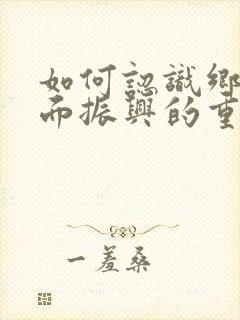 如何認識鄉
而振興的重
一羞桑